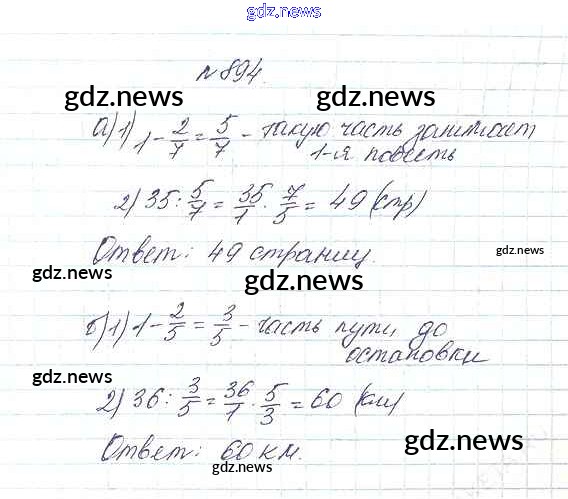 gdz.news
№894.
gdz.news gdz.news
а) 1) 1 - 2/7 = 5/7 - такую часть занимает
1-я повесть
2) 35 : 5/7 = 35/1 · 7/5 = 49 (стр)
Ответ: 49 страниц.
gdz.news
gdz.news gdz.news
б) 1) 1 - 2/5 = 3/5 - часть пути до
остановки
gdz.news
2) 36 : 3/5 = 36/1 · 5/3 = 60 (км)
Ответ: 60 км.
gdz.news
gdz.news